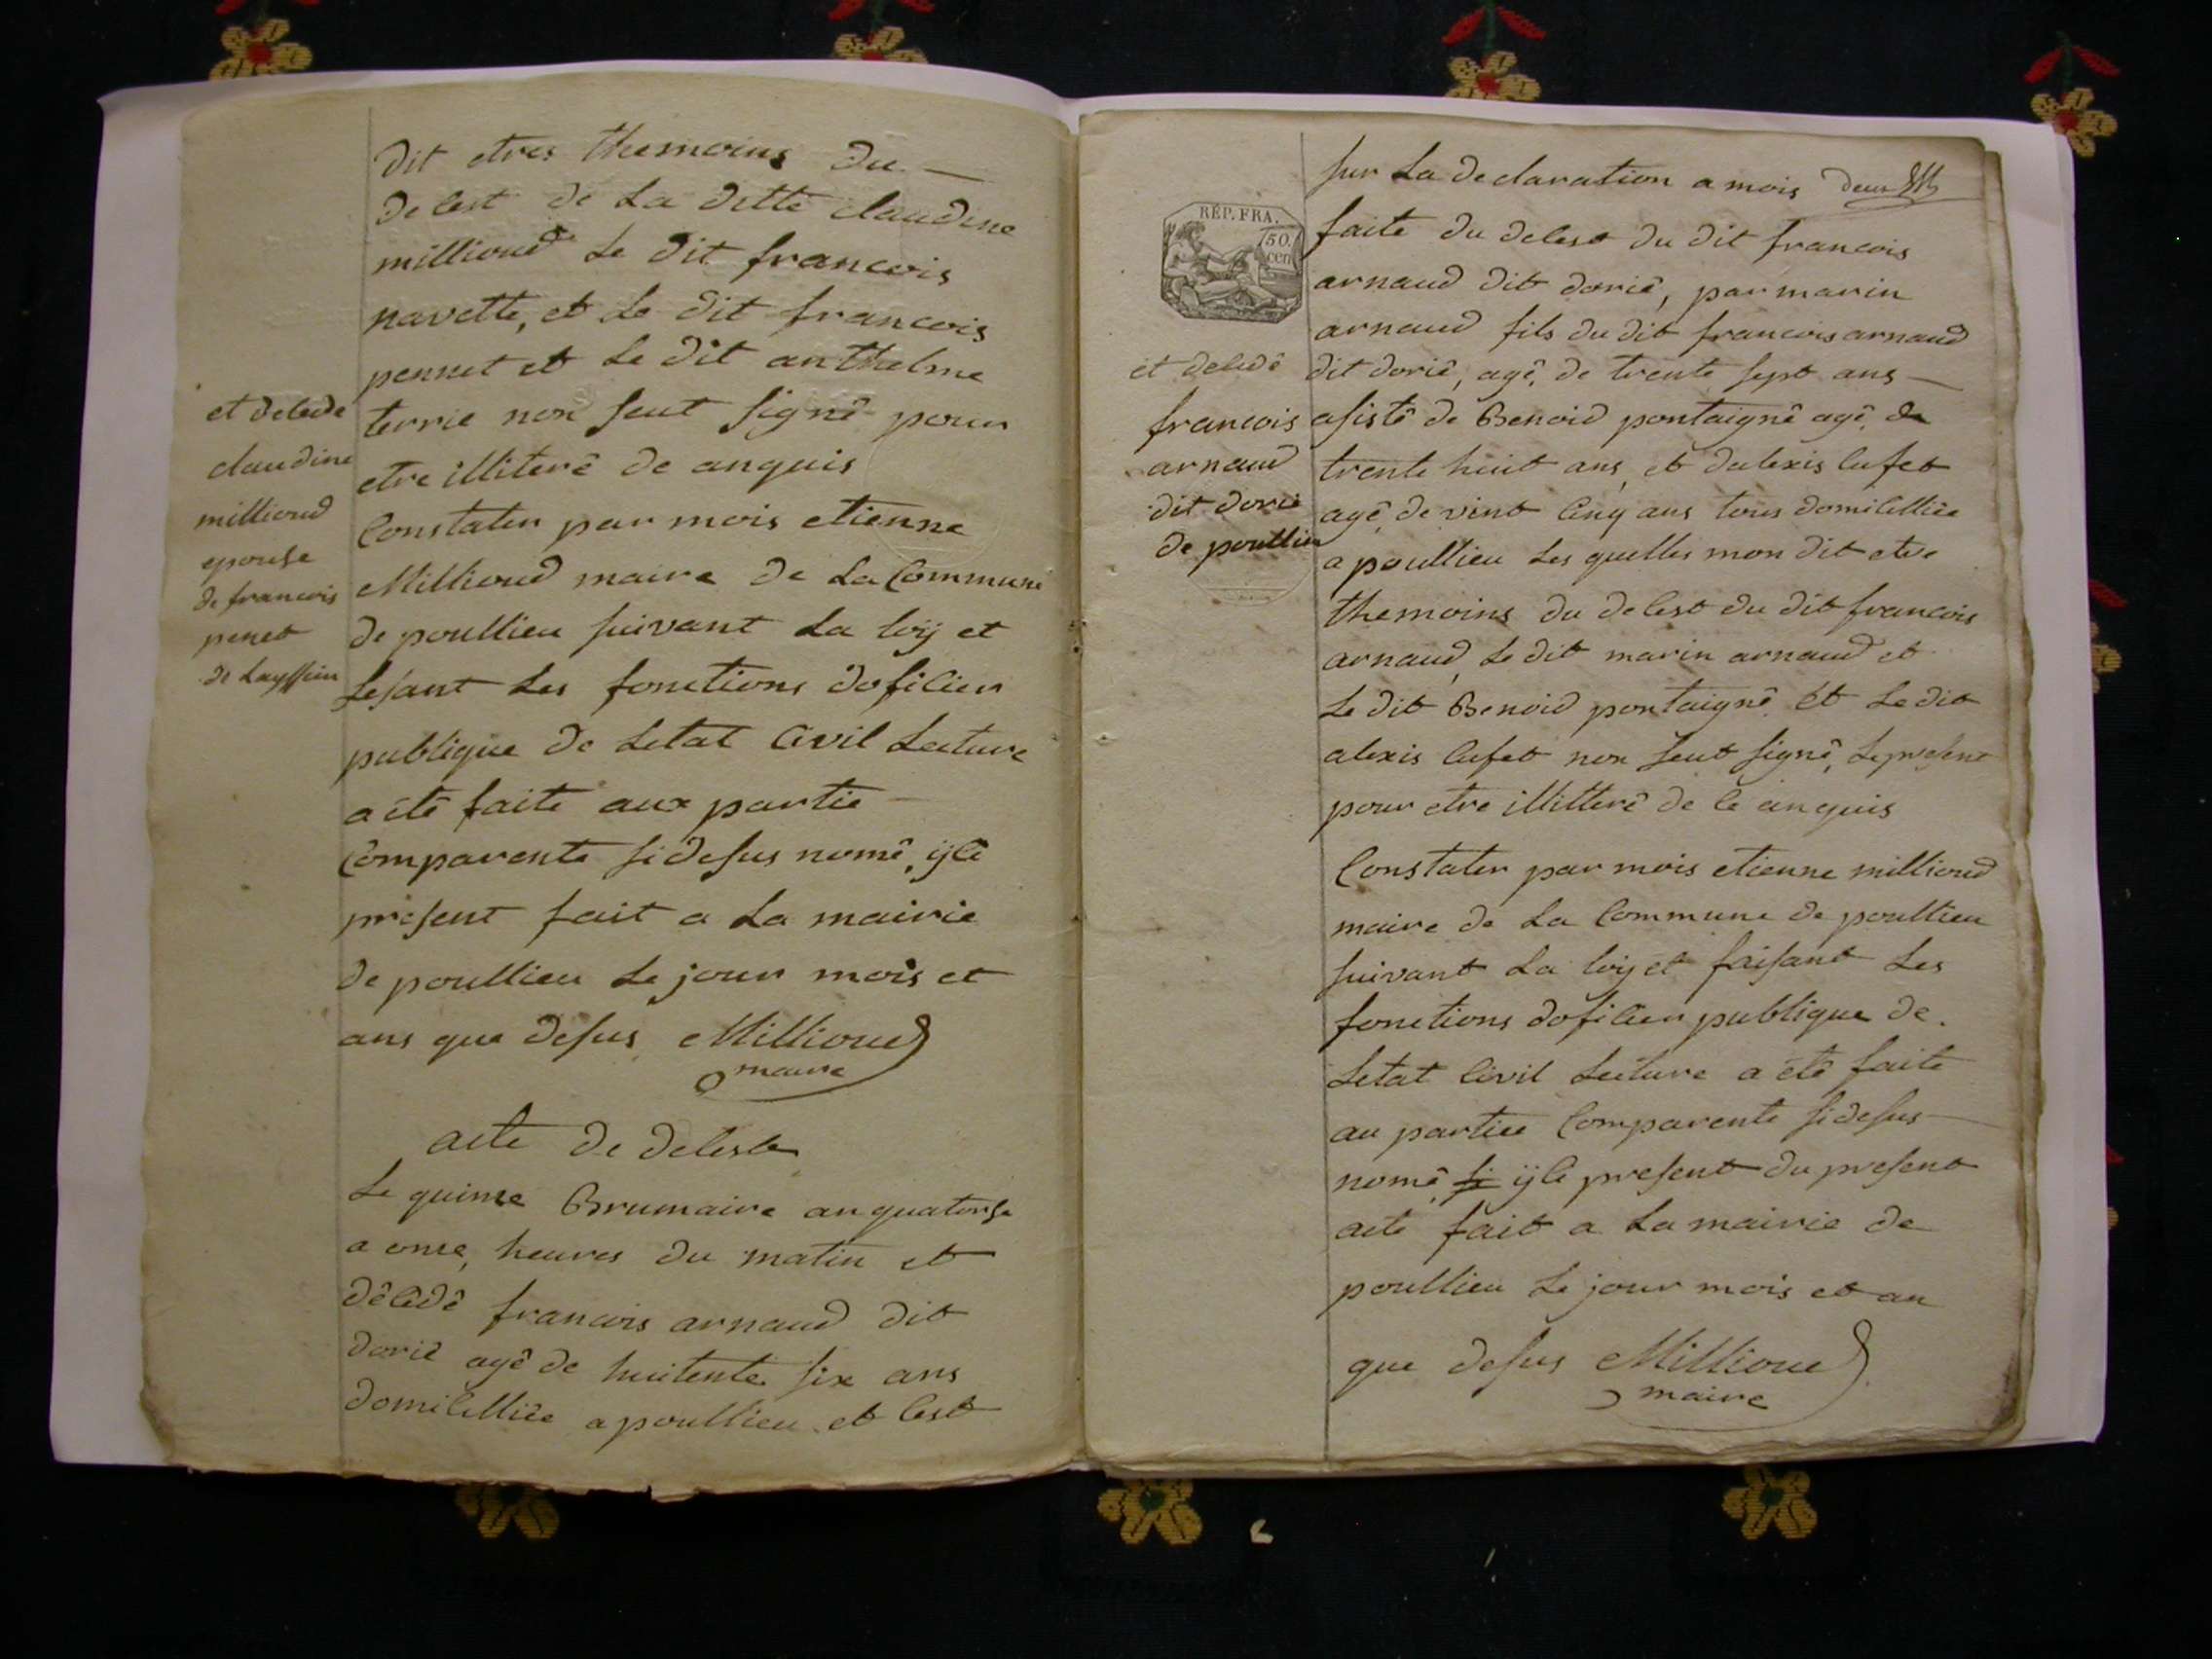 dit etres themoins du
delest de la ditte claudine
millioud le dit francois
navette, et le dit francois
pennet et le dit anthelme
terrie non seut signê pour
etre illiterê de anquis
Constater par mois etienne
Millioud maire de la Commune
de poullieu suivant la loÿ et
fesant les fonctions dofilier
publique de letat Civil lecture
a étê faite aux partie
Comparente sidesus nomê, ÿlê
present fait a la mairie
de poullieu le jour mois et
ans que desus Millioud
maire
et delede
claudine
millioud
epouse
de francois
penet
de Layssieu
acte de delest
Le quinse Brumaire an quatorse
a onse, heures du matin et
dêlêdê francois arnaud dit
doriê agê de huitente six ans
domilelliêe a poullieu et lest
RÉP. FRA.
50.
cen
sur la declaration a mois deux
faite du delest du dit francois
arnaud dit doriê, par marin
arnaud fils du dit francois arnaud
dit doriê, agê, de trente sept ans
asistê de Benoid pontaignê agê, de
trente huit ans, et dalexis lufet
agê, de vint Cinq ans tous domilelliêe
a poullieu les quelles mon dit etre
themoins du delest du dit francois
arnaud, le dit marin arnaud et
le dit Benoid pontaignê et le dit
alexis lufet non seut signê, le present
pour etre illitterê de le anquis
Constater par mois etienne millioud
maire de la Commune de poullieu
suivant la loÿ et faisant les
fonctions dofilier publique de
letat Civil lecture a étê faite
au partiee Comparente sidesus
nomê, si ÿlê present du present
acte fait a la mairie de
poullieu le jour mois et an
que desus Millioud
maire
et deledê
francois
arnaud
dit dorie
de poullieu